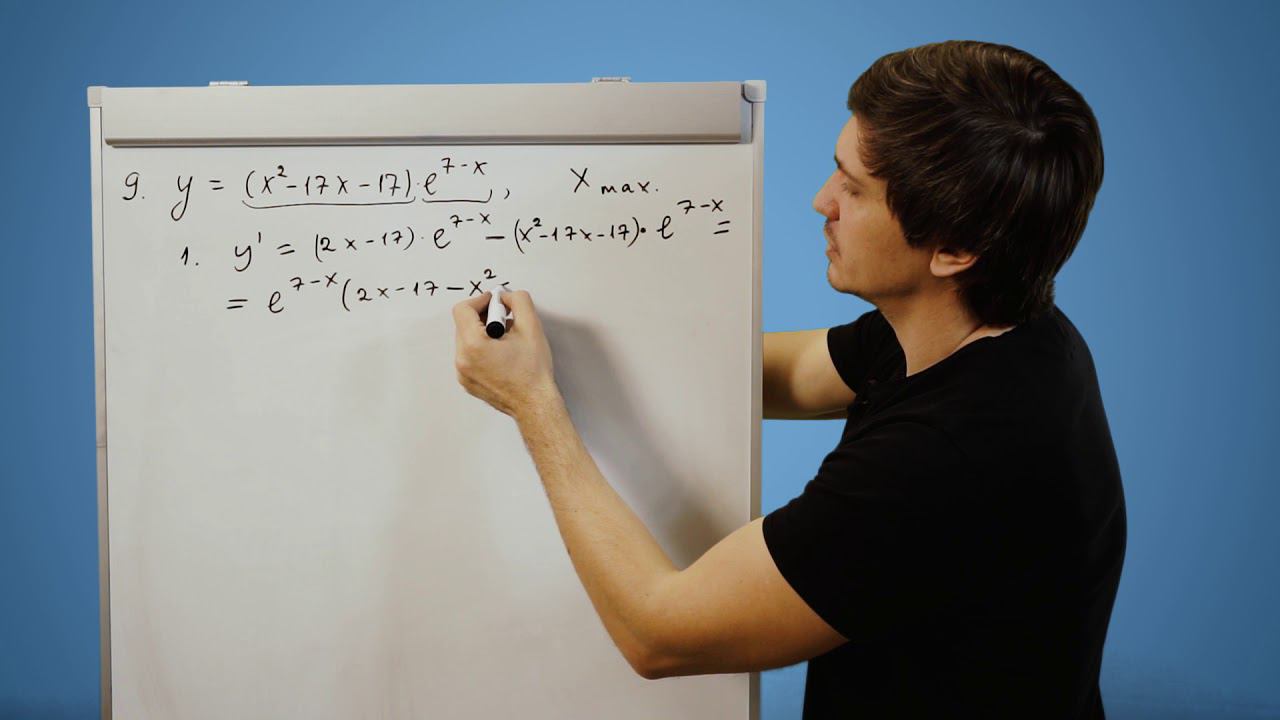 9. y = (x²-17x-17)·e^{7-x}, X max.
1. y' = (2x-17)·e^{7-x} - (x²-17x-17)·e^{7-x} =
= e^{7-x}(2x-17-x²